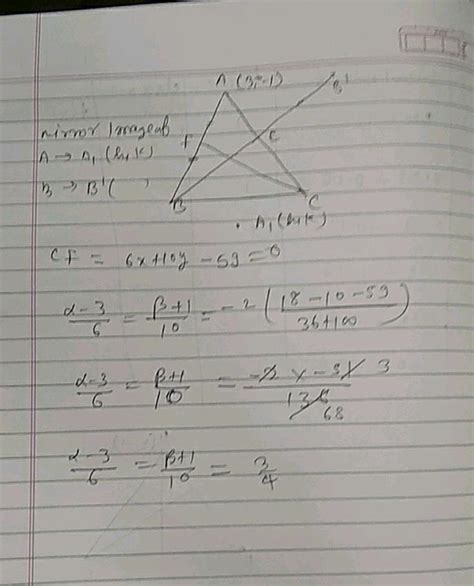 A (3, -1)
B'
Mirror Image of
A → A₁ (h, k)
F
E
B → B' ( )
B
C
• A₁ (h, k)
CF = 6x + 10y - 59 = 0
α-3/6 = β+1/10 = -2 (18-10-59/36+100)
α-3/6 = β+1/10 = -2 × -51 3/136 68
α-3/6 = β+1/10 = 3/4